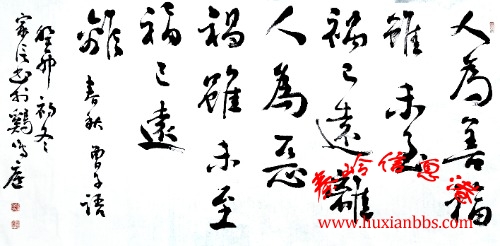 人為善福
雖未至
禍已遠離
人為惡
禍雖未至
福已遠
離 春秋 曾子語
癸卯 初冬
www.huxianbbs.com